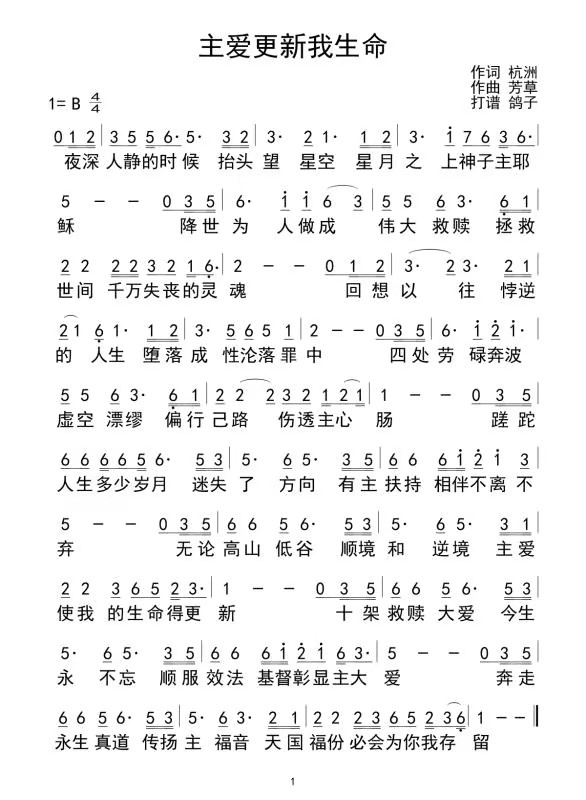 主爱更新我生命
作词 杭洲
作曲 芳草
打谱 鸽子
1= B 4/4
0 1 2 | 3 5 5 6· 5· 3 2 | 3· 2 1 1 2 | 3· i 7 6 3 6· |
夜深 人静的时 候 抬头 望 星空 星月 之 上神子主耶
5 - - 0 3 5 | 6· i i 6 3 | 5 5 6 3· 6 1 |
稣 降世 为 人做成 伟大 救赎 拯救
2 2 2 2 3 2 1 6· | 2 - - 0 1 2 | 3· 2 3· 2 1 |
世间 千万失丧的灵 魂 回想 以 往 悖逆
2 1 6 1· 1 2 | 3 5 5 2 1 1 | 2 - - 0 3 5 | 6· i 2 i· |
的 人生 堕落成 性沦落罪中 四处 劳 碌奔波
5 5 6 3· 6 1 | 2 2 2 3 2 1 1 2 1 | 1 - - 0 3 5 |
虚空 漂缪 偏行 己路 伤透主心 肠 蹉跎
6 6 6 6 5 6 3 | 5· 5 6 5· 3 5 | 6 6 6 i 2 i 3 |
人生多少岁月 迷失 了 方向 有主 扶持 相伴不离 不
5 - - 0 3 5 | 6 6 5 6· 5 3 | 5· 2 5· 3 1 |
弃 无论 高山 低谷 顺境 和 逆境 主爱
2 2 3 6 5 2 3· | 1 - - 0 3 5 | 6 6 5 6· 5 3 |
使我 的生命得更 新 十架 救赎 大爱 今生
5· 6 5· 3 5 | 6 6 6 i 2 i 6 3· | 5 - - 0 3 5 |
永 不忘 顺服 效法 基督彰显主大 爱 奔走
6 6 6 5 6· 5 3 | 5· 2 3· 2 1 | 2 2 2 3 6 5 2 3 6 | 1 - -
永生 真道 传扬 主 福音 天国 福份 必会为你我存 留
1